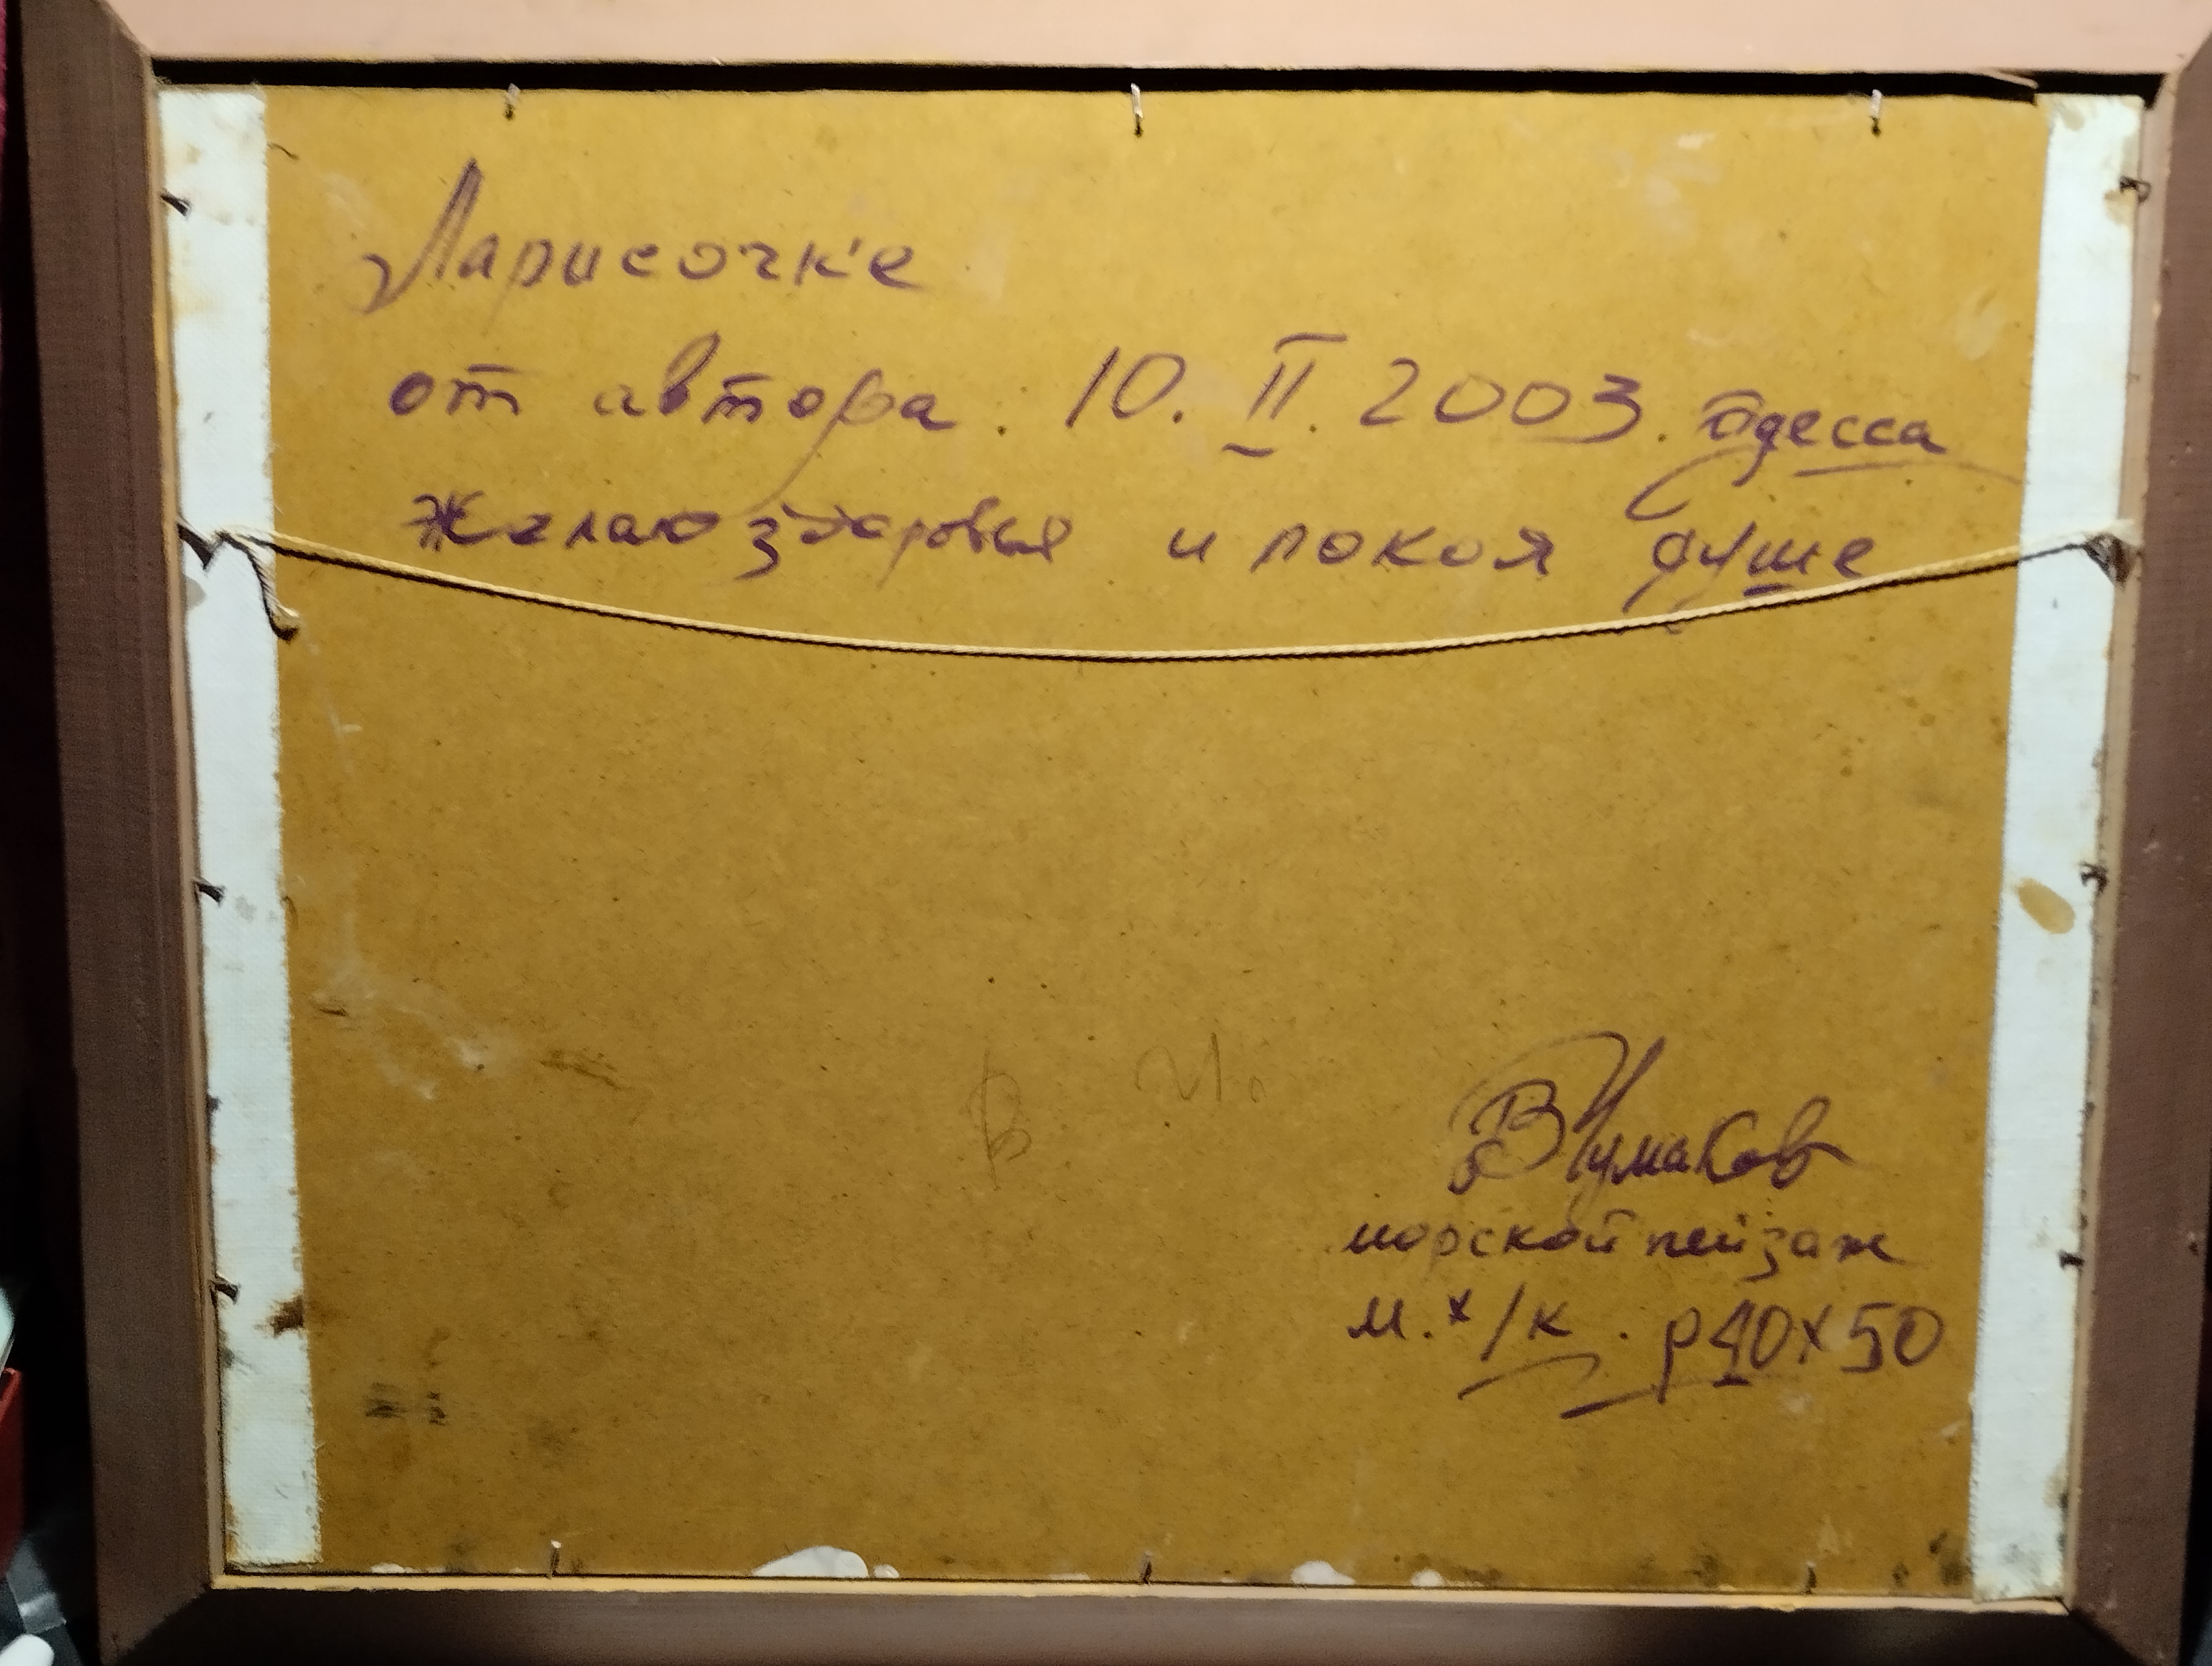 Ларисочке
от автора. 10. II. 2003. Одесса
Желаю здоровья и покоя душе
В Чумаков
морской пейзаж
м.х/к. р 40х50